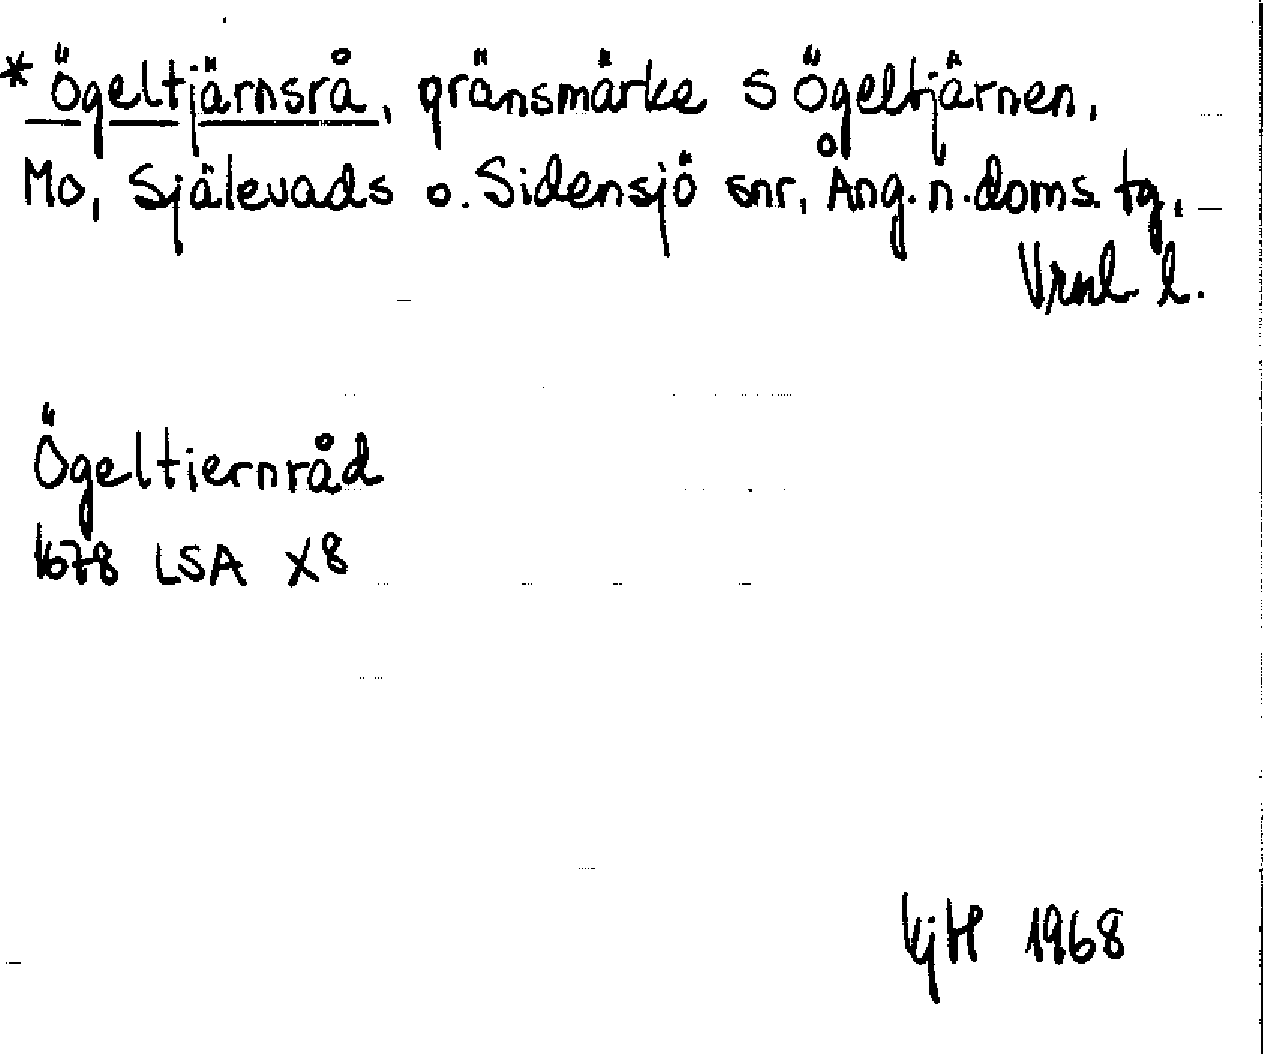 * Ögeltjärnsrå, gränsmärke S Ögeltjärnen,
Mo, Själevads o. Sidensjö snr, Ång. n. doms. tg,
Vrnl l.
Ögeltiernråd
1678 LSA X8
KjH 1968